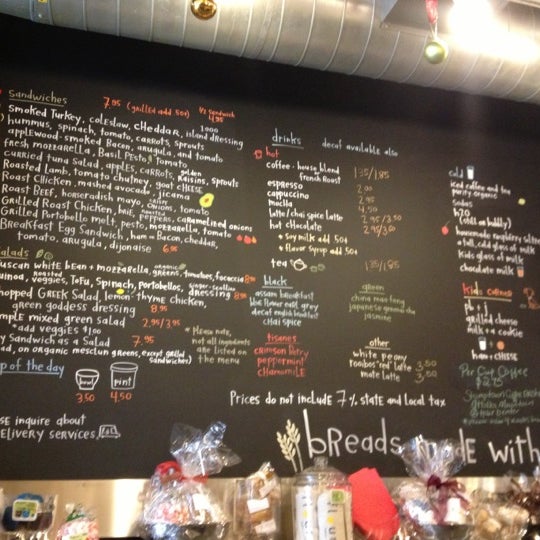 Sandwiches 7.95 (grilled add 50¢) 1/2 Sandwich 4.95
Smoked Turkey, coleslaw, cheddar, 1000 island dressing
hummus, spinach, tomato, carrots, sprouts
applewood-smoked Bacon, arugula, and tomato
fresh mozzarella, Basil Pesto, tomato
curried tuna Salad, apples, carrots, golden Raisins, sprouts
Roasted Lamb, tomato chutney, goat cheese
Roast Chicken, mashed avocado, jicama
Roast Beef, horseradish mayo, crispy onions, tomato
Grilled Roast Chicken, brie, roasted peppers, caramelized onions
Grilled Portobello melt, pesto, mozzarella, tomato
Breakfast Egg Sandwich, ham or Bacon, cheddar,
tomato, arugula, dijonaise 6.95
alads
uscan white bean + mozzarella, organic greens, tomatoes, focaccia 8.95
uinoa, roasted veggies, Tofu, Spinach, Portobellos, ginger-scallion dressing 8.95
hopped GREEK Salad, lemon-thyme chicken,
green goddess dressing 8.95
mple mixed green salad 2.95/3.95
*add veggies $1.00
y Sandwich as a Salad 7.95
ad, on organic mesclun greens, except grilled sandwiches)
p of the day
bowl 3.50
pint 4.50
se inquire about
elivery services,
* Please note,
not all ingredients
are listed on
the menu
drinks decaf available also
hot
coffee · house blend 1.35/1.85
french Roast
espresso 2.00
cappuccino
mocha
latte/chai spice latte 2.95/3.50
hot chocolate
* soy milk add 50¢
* flavor syrup add 50¢
tea 1.35/1.85
black
assam breakfast
blue flower earl grey
decaf english breakfast
chai spice
green
china mao feng
japanese genmai cha
jasmine
tisanes
crimson berry
peppermint
chamomile
other
white peony
rooibos 'red' latte 3.50
mate latte 3.50
Prices do not include 7% state and local tax
cold
iced coffee and tea
purity organic
sodas
h2o
(still or bubbly)
homemade raspberry
a tall, cold glass of milk
kids glass of milk
chocolate milk
kids corner
pb + j
grilled cheese
milk + a cookie
ham + cheese
Per Cup Coffee
$2.75
breads made with